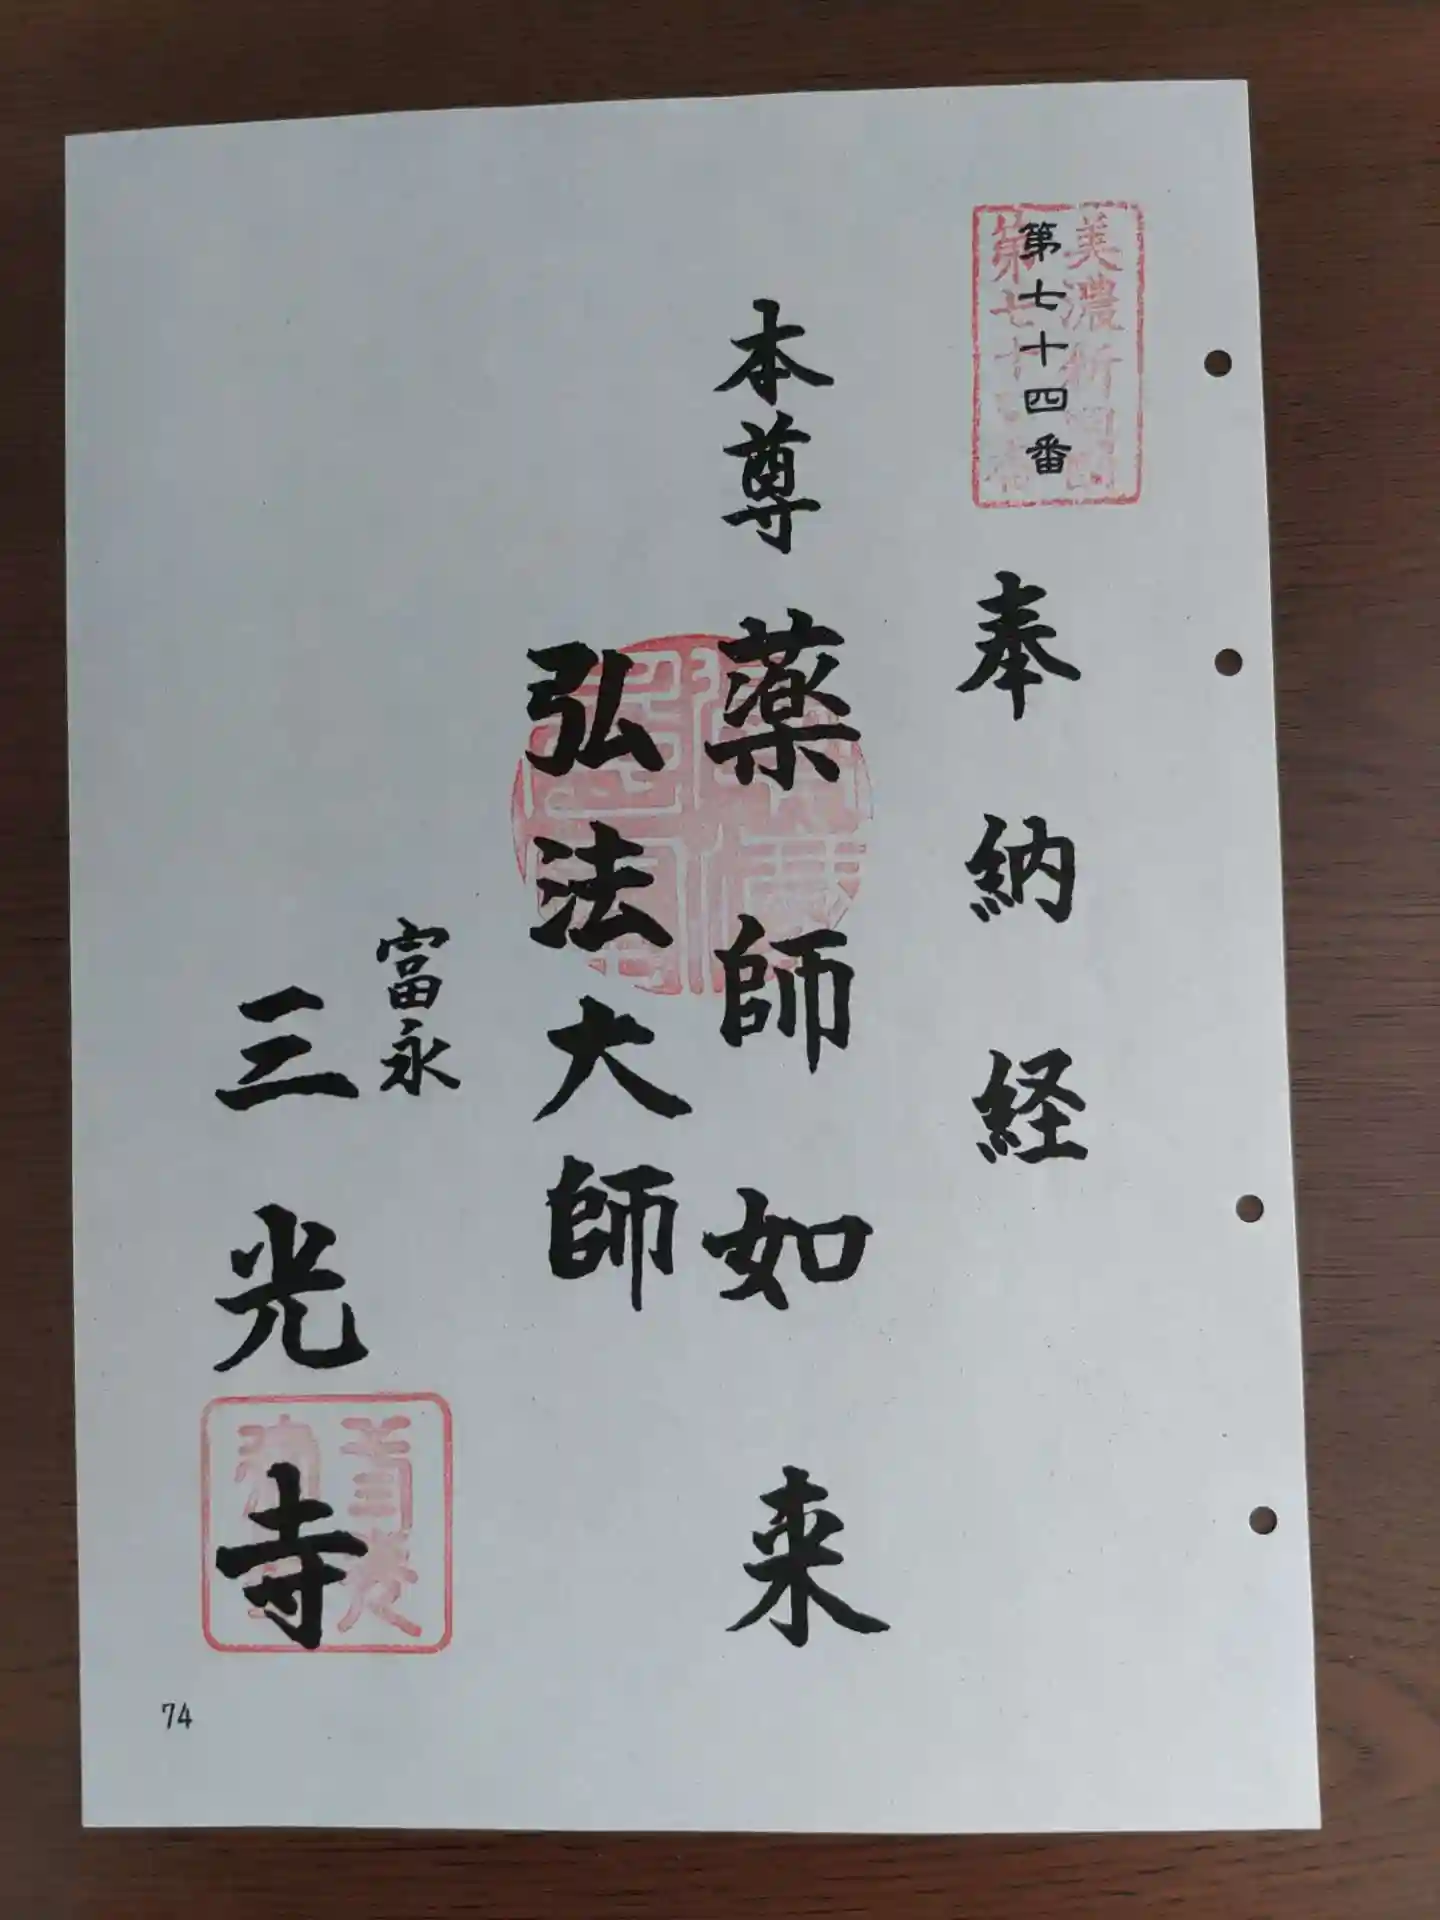 美濃新四国
第七十四番
第七十四番
奉納経
本尊 薬師如来
弘法大師
富永
三光寺
74